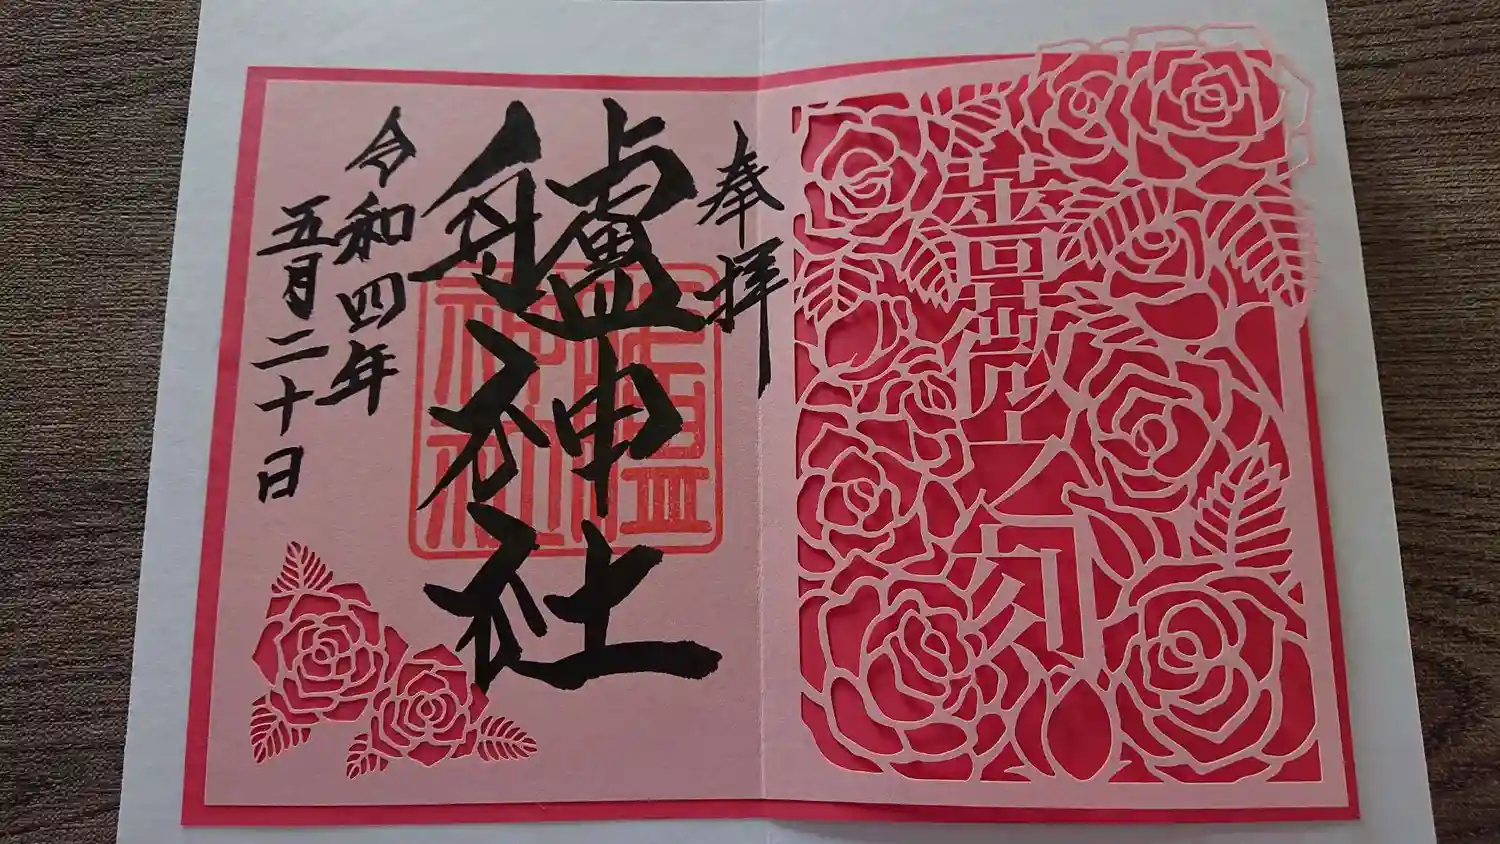 薔薇之刻
奉拝
艫神社
令和四年
五月二十日